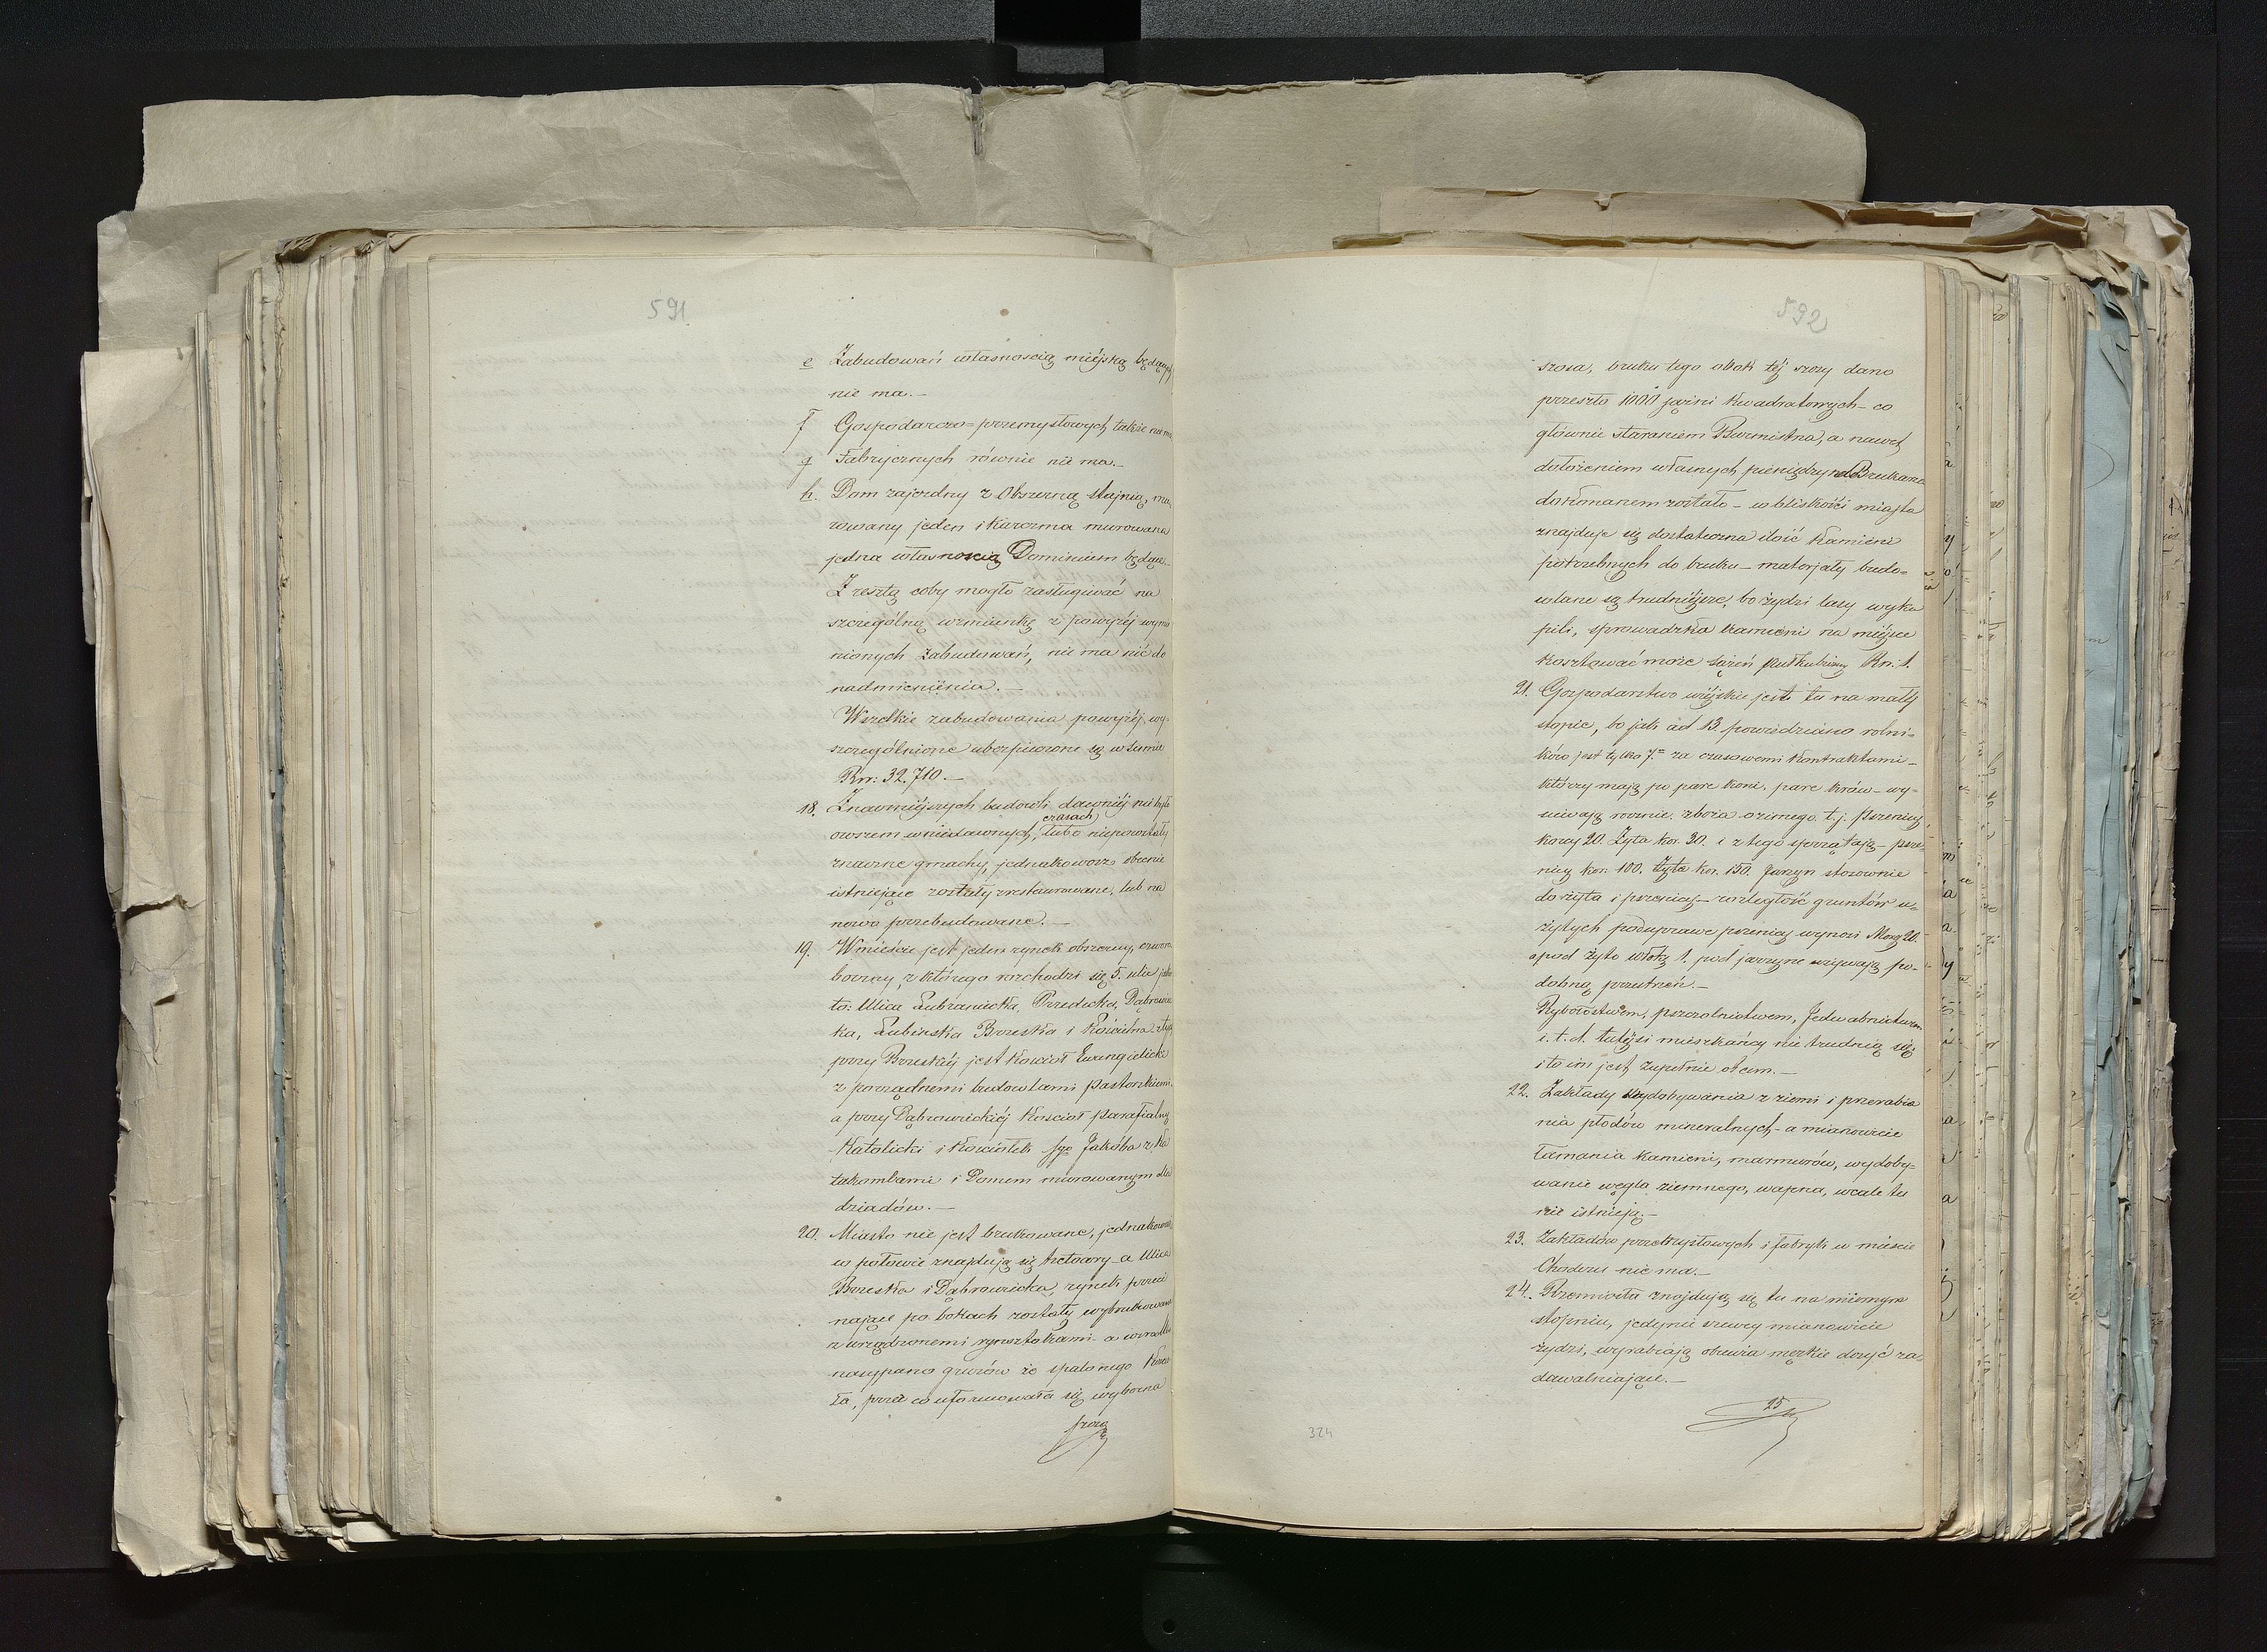 591
e Zabudowań własnoscią miéjską będących
nie ma.—
f Gospodarczo=przemysłowych także nie ma
g Fabrycznych równie nie ma.—
h. Dom zajezdny z Obszerną stajnią, mu
rowany jeden i karczma murowana
jedna własnoscią Dominium będąca.
Z resztą coby mogło zasługiwać na
szczególną wzmiankę z powyżéj wymie
nionych zabudowań, nie ma nic do
nadmienienia.—
Wszelkie zabudowania powyżéj wy-
szczególnione ubezpieczone są w sumie
Rsr: 32,710.—
18. Znaczniéjszych budowli dawniéj nie było
czasach
owszem w niedawnych, lubo niepowstały
znaczne gmachy, jednakowoż obecnie
istniejące zostały zrestaurowane, lub na
nowo przebudowane.—
19. W mieście jest jeden rynek obszerny, czworo
boczny, z którego rozchodzi się 5. ulic jako
to: Ulica Lubraniecka, Przedecka, Dąbrowic
ka, Lubieńska Brzeska i Kościelna z tych
przy Brzeskiéj jest Kościoł Ewangielicki
z porządnemi budowlami pastorskiemi
a przy Dąbrowickiéj Kościoł parafialny
Katolicki i Kościołek Sgo Jakóba z Ka
takombami i Domem murowanym dla
dziadów.—
20. Miasto nie jest brukowane, jednakowoż
w połowie znajdują się trotoary a Ulica
Brzeska i Dąbrowicka, rynek przeci
nające po bokach zostały wybrukowane
z urządzonemi rynsztokami a
nasypano gruzów ze spalonego Kościo
ła, przez co uformowała się wyborna
szosa
592
szosa, bruku tego obok téj szosy dano
przeszło 1000 sążni kwadratowych— co
głównie staraniem Burmistrza, a nawet
dołożeniem własnych pieniędzy na Brukarza
dokonanem zostało — w bliskości miasta
znajduje się dostateczna ilość kamieni
potrzebnych do bruku — materjały budo=
wlane są trudniéjsze, bo żydzi lasy wyku
pili, sprowadzka kamieni na miéjsce
kosztować może sążeń półkubiczny Rsr. 1.
21. Gospodarstwo wiéjskie jest tu na małéj
stopie, bo jak ad 13. powiedziano rolni=
ków jest tylko 7= za czasowemi kontraktami—
którzy mają po parę koni, parę krów — wy-
siewają rocznie zboża ozimego t.j. pszenicy
korcy 20. Żyta kor. 30. i z tego sprzątają — psze-
nicy kor. 100. Żyta kor. 150. Jarzyn stosownie
do żyta i pszenicy — rozległość gruntów u=
żytych pod uprawę pszenicy wynosi Morg 20.
a pod żyto włokę 1. pod jarzynę używają po-
dobną przestrzeń.—
Rybołostwem, pszczolnictwem, Jedwabnictwem
i. t. d. tutéjsi mieszkańcy nie trudnią się
i to im jest zupełnie obcem.—
22. Zakłady wydobywania z ziemi i przerabia
nia płodów mineralnych — a mianowicie
łamania kamieni, marmurów, wydoby=
wanie węgla ziemnego, wapna, wcale tu
nie istnieją.—
23. Zakładów przemysłowych i fabryk w mieście
Chodczu nie ma.—
24. Rzemiosła znajdują się tu na miernym
stopniu, jedynie szewcy mianowicie
żydzi, wyrabiają obuwia męzkie dosyć za=
dawalniające.—
25
324